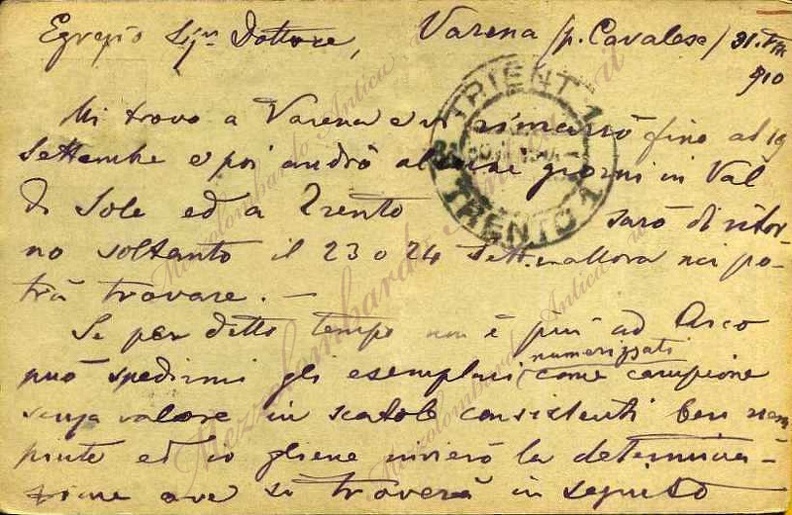 Egregio Sigr. Dottore, Varena (p. Cavalese) 31. VIII
910
Mi trovo a Varena e vi rimarrò fino al 19
Settembre e poi andrò alcuni giorni in Val
di Sole ed a Trento sarò di ritor
no soltanto il 23 o 24 Sett. allora mi po-
trà trovare. —
Se per detto tempo non è più ad Arco
numerizzati
può spedirmi gli esemplari come campione
senza valore in scatole consistenti ben riem
piute ed io gliene invierò la determina-
zione ove si troverà in seguito
TRIENT 1
TRENTO 1
Mezzolombardo Antica